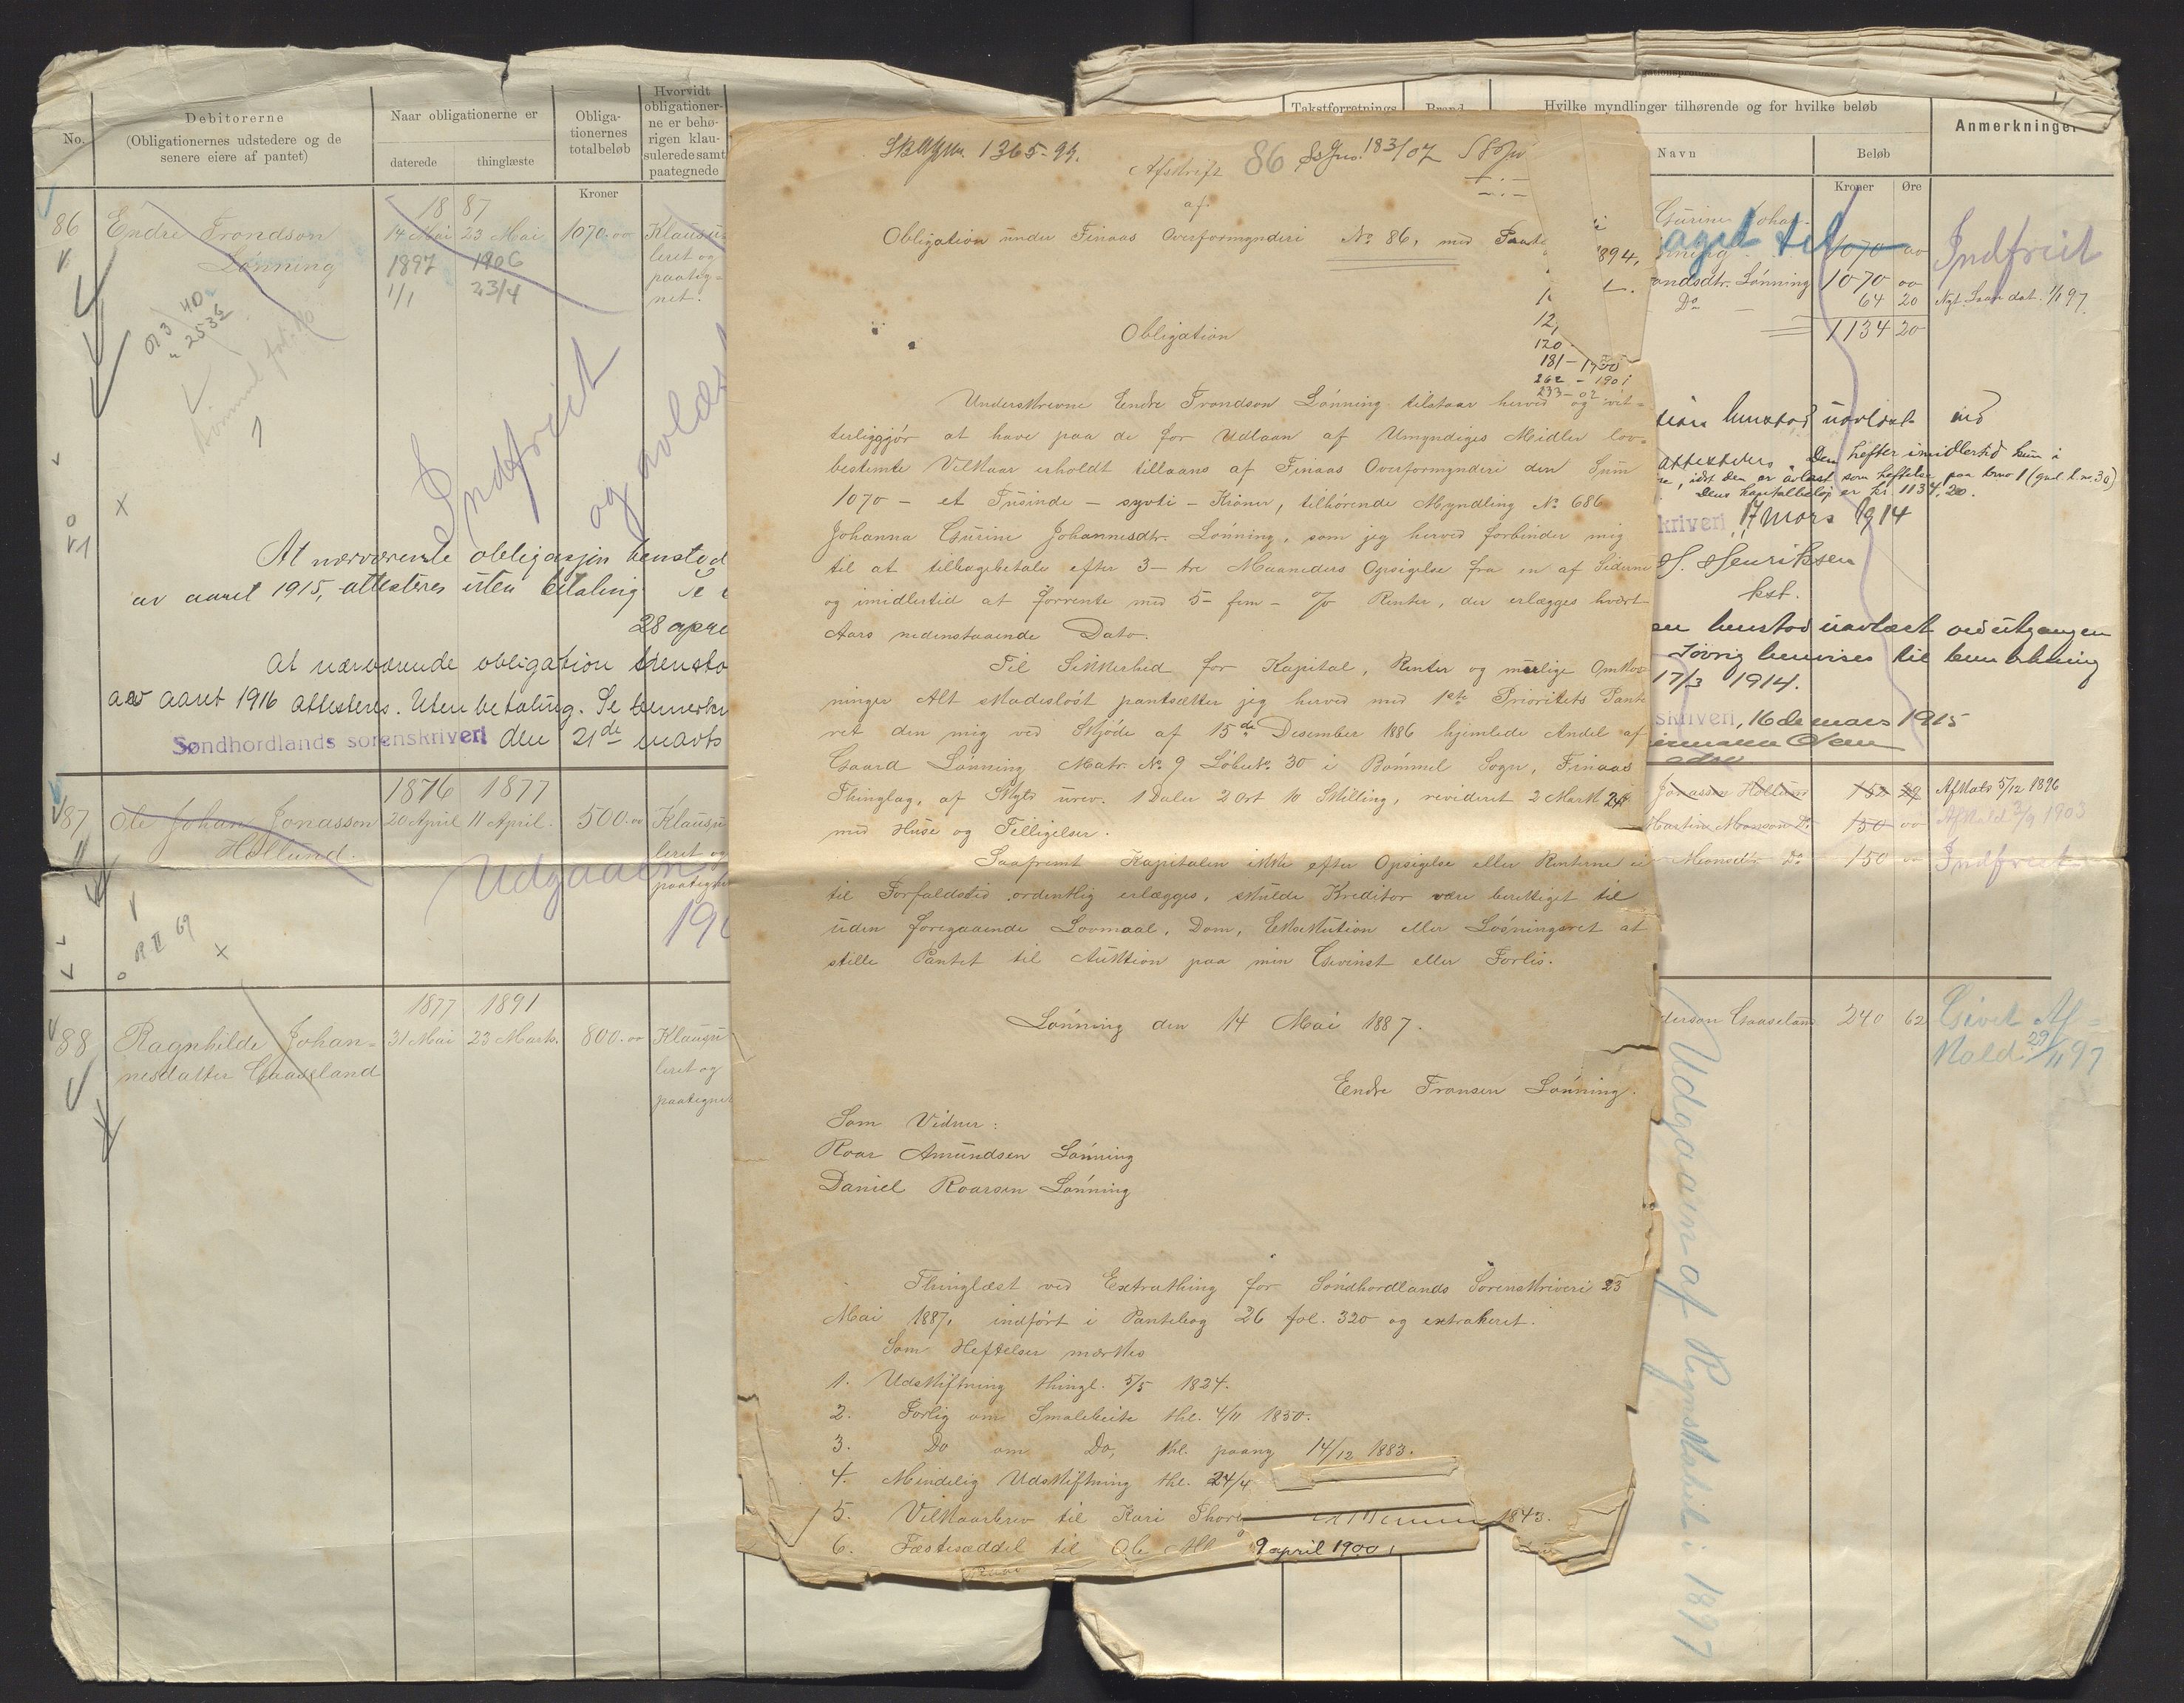 No.
Debitorerne
(Obligationernes udstedere og de
senere eiere af pantet)
Naar obligationerne er
daterede
thinglæste
Obliga-
tionernes
totalbeløb
Kroner
Hvorvidt
obligationer-
ne er behø-
rigen klau-
sulerede samt
paategnede
18 87
86 Endre Trondson 14 Mai 23 Mai 1070.00 Klausu-
Lønning 1897 1906 leret og
1/1 23/4 paateg-
net.
Indfriet
og avlæs
At nærværende obligasjon henstod
av aaret 1915, attesteres uten betaling
28 apri
At nærværende obligation hensto
av aaret 1916 attesteres. Uten betaling. Se bemerkn
Søndhordlands sorenskriveri den 21de marts
1876 1877
87 Ole Johan Jonasson 20 April 11 April. 500.00 Klausu
Hollund. leret og
paategnet
Udgaaen
190
1877 1891
88 Ragnhilde Johan- 31 Mai 23 Marts. 800.00 Klausu
nesdatter Gaaseland leret og
paategnet
1365-94.
Afskrift 86 183/07
af
Obligation under Finaas Overformynderi No 86, med
894,
Obligation
12,
120
181 - 1900
262 - 1901
233 - 02
Underskrevne Endre Trondson Lønning tilstaar herved og vit-
terliggjør at have paa de for Udlaan af Umyndiges Midler lov-
bestemte Vilkaar erholdt tillaans af Finaas Overformynderi den Sum
1070 - et Tusinde - sytti - Kroner, tilhørende Myndling No 686
Johanna Gurine Johannesdtr. Lønning, som jeg herved forbinder mig
til at tilbagebetale efter 3 - tre Maaneders Opsigelse fra en af Siderne
og imidlertid at forrente med 5 - fem - % Renter, der erlægges hvert
Aars nedenstaaende Dato.
Til Sikkerhed for Kapital, Renter og mulige Omkos-
ninger Alt skadesløst pantsætter jeg herved med 1ste Prioritets Pante
ret den mig ved Skjøde af 15de Desember 1886 hjemlede Andel af
Gaard Lønning Matr. No 9 Løbeno. 30 i Bømmel Sogn, Finaas
Thinglag, af Skyld urev. 1 Daler 2 Ort 10 Skilling, revideret 2 Mark 24
med Huse og Tilligelser.
Saafremt Kapitalen ikke efter Opsigelse eller Renterne ei
til Forfaldstid ordentlig erlægges, skulde Kreditor være berettiget til
uden foregaaende Lovmaal, Dom, Eksekution eller Løsningsret at
stille Pantet til Auktion paa min Gevinst eller Forlis.
Lønning den 14 Mai 1887.
Endre Tronsen Lønning.
Som Vidner:
Roar Amundsen Lønning
Daniel Roarsen Lønning
Thinglæst ved Extrathing for Søndhordlands Sorenskriveri 23
Mai 1887, indført i Pantebog 26 fol. 320 og extraheret.
Som Heftelser mærkes
1. Udskiftning thingl. 5/5 1824.
2. Forlig om Smalebeite thl. 4/11 1850.
3. Do om Do, thl. paany 14/12 1883.
4. Mindelig Udskiftning thl. 24/4
5. Vilkaarbrev til Kari Thor 1843.
6. Fæstesæddel til Ole 9 april 1900
Takstforretnings
Brand
Hvilke myndlinger tilhørende og for hvilke beløb
Navn
Beløb
Kroner
Øre
Anmerkninger
Gurine Johan-
1070 00 Indfriet
andsdtr. Lønning 1070 00
Do 64 20 1/1 97.
1134 20
henstod uavløst ved
attesteres. Den hefter imidlertid kun i
, idet den er avløst som heftelse paa bruk 1 (gml. l.no. 30)
Dens kapitalbeløp er kr 1134,20.
skriveri, 17 Mars 1914
H. Henriksen
kst.
henstod uavløst ved utgangen
Iøvrig henvises til bemerkning
17/3 1914.
skriveri, 16 de mars 1915
Hermann Olsen
Jonassen Hollund 152 Afkald 5/12 1896
Martine Monson Do 150 00 Afkald 3/9 1903
Monsdtr. Do 150 00 Indfriet
derson Gaaseland 240 62 Givet Af-
kald 29/11 97
Udgaaen af Regnskabet i 1897